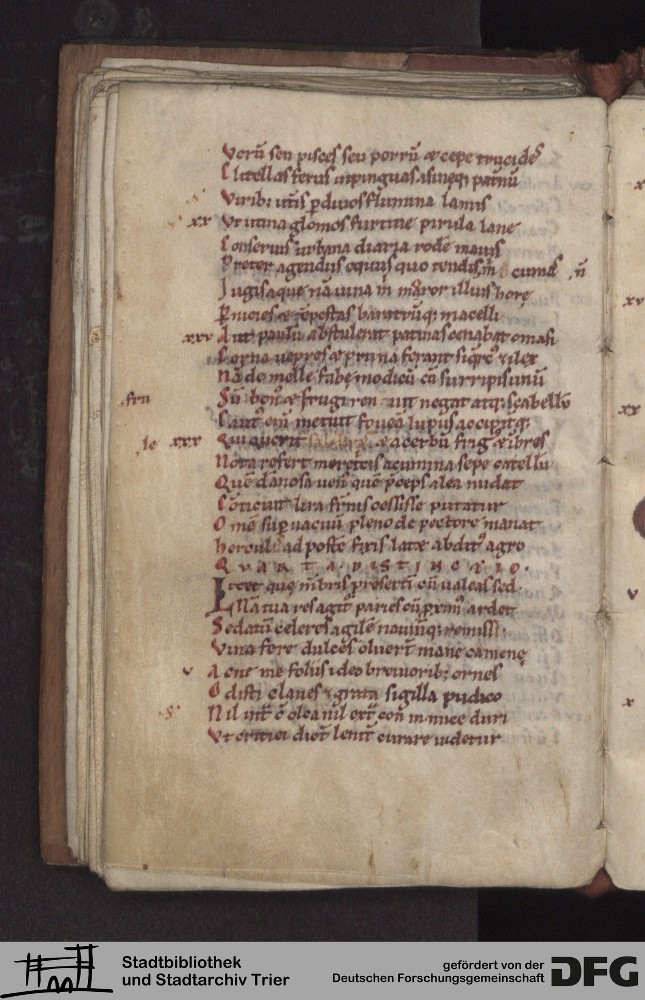 Verū seu pisces seu porrū & cepe trucidas
Clitellas ferus inpinguas asineq; patinū
Virib; utīs p diuos flumina lamis
xx Vt uina glomos furtiue pirula lane
Conseruis urbana diaria rodē mauis
Preter agendus equus quo tendis m̄ cumas n̄
Iugis aque nā uina in maror illius horę
Pnicies & tēpestas baratrūq; macelli
xxv Aut paulū abstulerat patinas cenabat omasi
Corna uepres & pruna ferant si qrc̄ & ilex
Nā de mille fabę modicū cū surripis unū
fru Sū bon' & frugi ren uit negat atq; scabellū
Caut' eni metuit foueā lupus accipitq;
le xxx Qui querit & acerbū frig' & ibres
Nota refert meretcis acumina sepe catellū
Quē dānosa uen' quē pceps alea nudat
Cōticuit lira
Omē supuacuū pleno de pectore manat
herculis ad postē fixis latæ abdit' agro
QVARTA DISTINCTIO.
Licet que mbris presertī cū ualeas sed.
Nā tua res agit' paries cū pxim' ardet
Sedatū celeres agilē nauūq; remissi:
Vina fere dulces oluert̄ mane camenę
v Ac ne me foliis ideo breuiorib; ornes
Odisti claues & grata sigilla pudico
S Nil int̄ ē olea nil ext̄ con̄ in nuce duri
Vt critici dict̄ leuit̄ curare uidetur
x
xv
xx
v
x
Stadtbibliothek
und Stadtarchiv Trier
gefördert von der
Deutschen Forschungsgemeinschaft
DFG